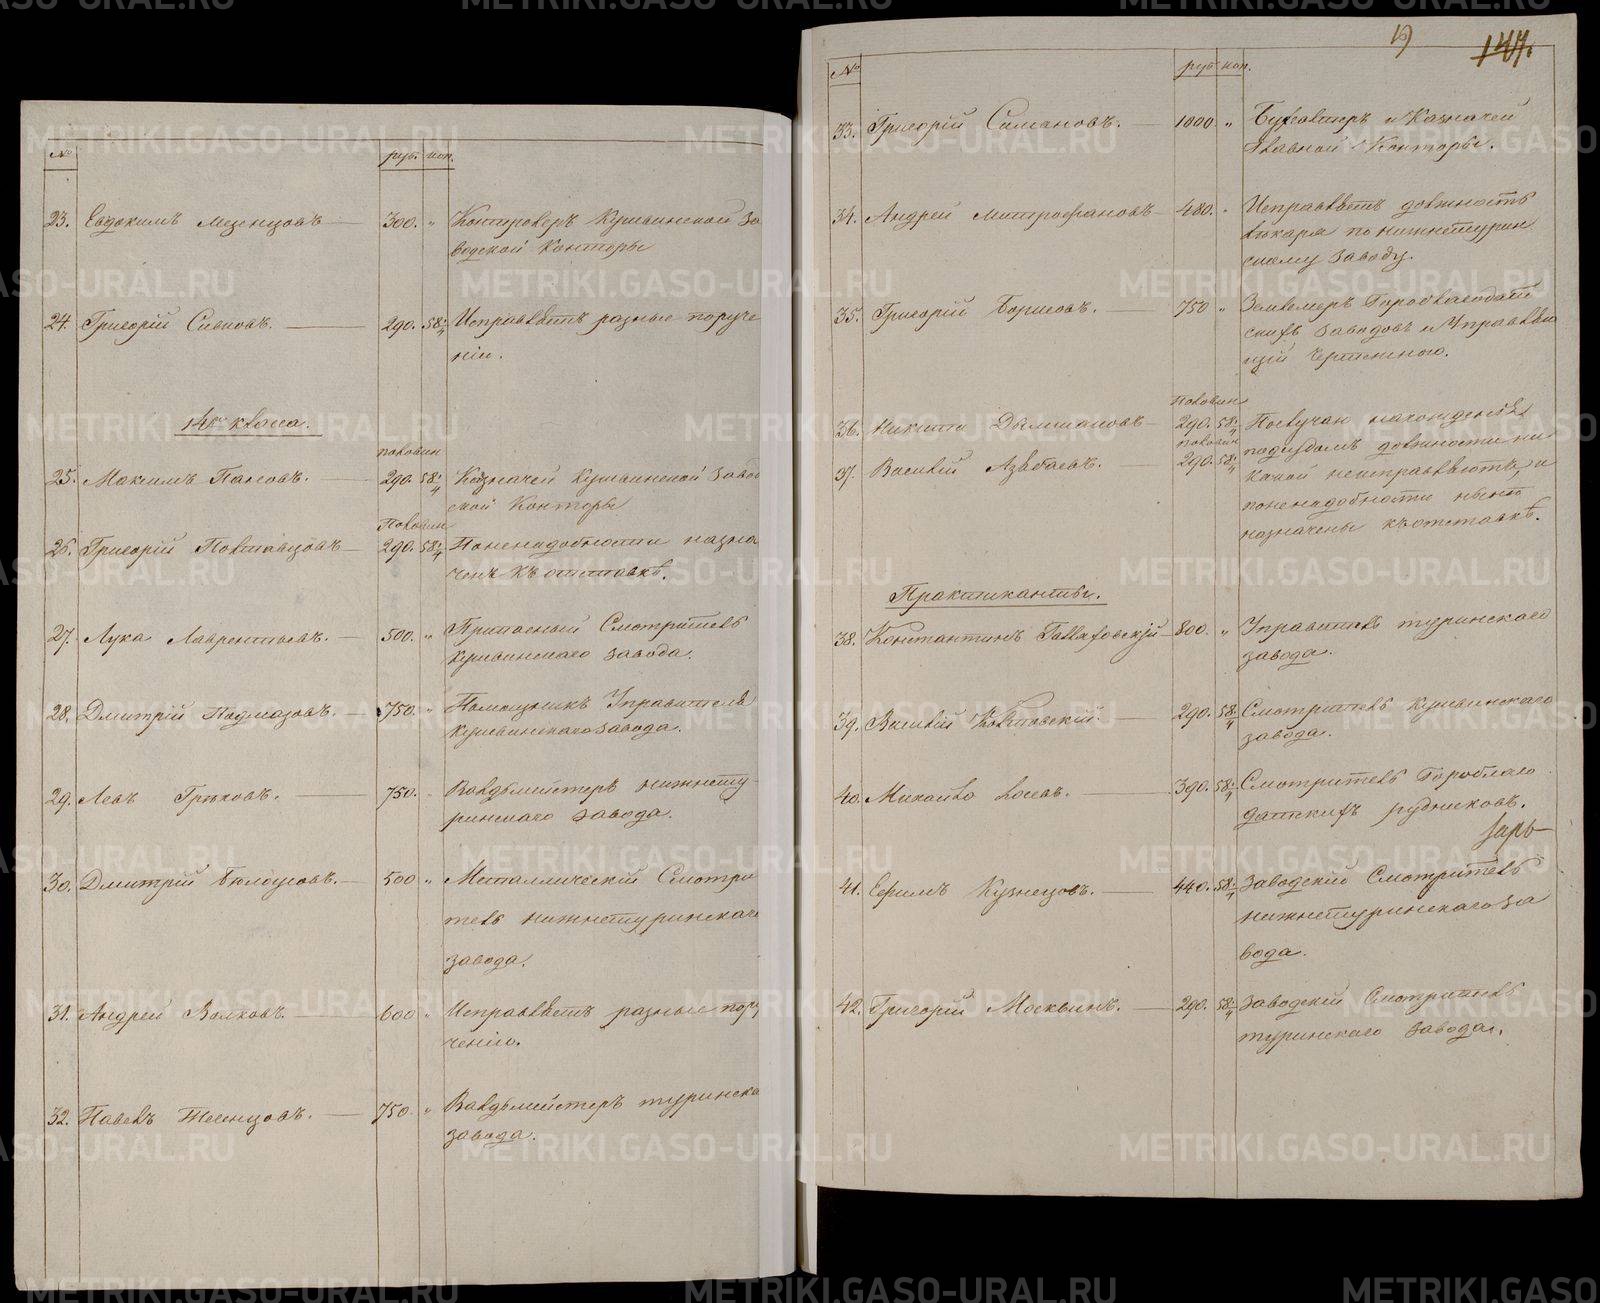 № руб. коп.
23. Евдокимъ Мезенцовъ 300. „ Контролеръ Кушвинской За
водской Конторы
24. Григорій Сивковъ. 290. 58 1/4 Исправляетъ разные поруче
нія.
14го класа.
половин
25. Максимъ Пановъ. 290. 58 1/4 Казначей Кушвинской завод
ской Конторы
половин
26. Григорій Полтавцовъ 290. 58 1/4 Поненадобности назна
ченъ къ отставкѣ.
27. Лука Лаврентьевъ. 500. „ Припасный Смотритель
кушвинскаго завода.
28. Дмитрій Подмазовъ. 750. „ Помощникъ Управителя
кушвинскаго завода.
29. Левъ Грѣховъ. 750. „ Валдъмейстеръ нижнету
ринскаго завода.
30. Дмитрій Бѣлоусовъ. 500 „ Металлическій Смотри
тель нижнетуринскаго
завода.
31. Андрей Волковъ. 600 „ Исправляетъ разные пору
ченія.
32. Павелъ 750. „ Валдъмейстеръ туринска
завода.
147.
№ руб коп.
33. Григорій Симановъ. 1000 „ Бухгалтеръ и Казначей
Главной Конторы.
34. Андрей Митрофановъ 480. „ Исправляетъ должность
лѣкаря по нижнетурин
скому заводу.
35. Григорій Борисовъ. 750 „ Землемеръ Гороблагодат
скихъ заводовъ и Управляю
щій Чертежною.
половин
36. Никита 290. 58 1/4 Послучаю нахожденія
половин
37. Василій 290. 58 1/4 подсудомъ должности ни
какой неисправляютъ, и
поненадобности нынѣ
назначены къ отставкѣ.
Практиканты.
38. Константинъ Галляховскій 800. „ Управитель туринскаго
завода.
39. Василій Колтовскій. 290. 58 1/4 Смотритель Кушвинскаго
завода.
40. Михайло Лосевъ. 390. 58 1/4 Смотритель Гороблаго
датскихъ рудниковъ.
41. Ефимъ Кузнецовъ. 440. 58 1/4 Заводскій Смотритель
нижнетуринскаго за
вода.
42. Григорій Москвинъ. 290. 58 1/4 Заводскій Смотритель
туринскаго завода.
METRIKI.GASO-URAL.RU